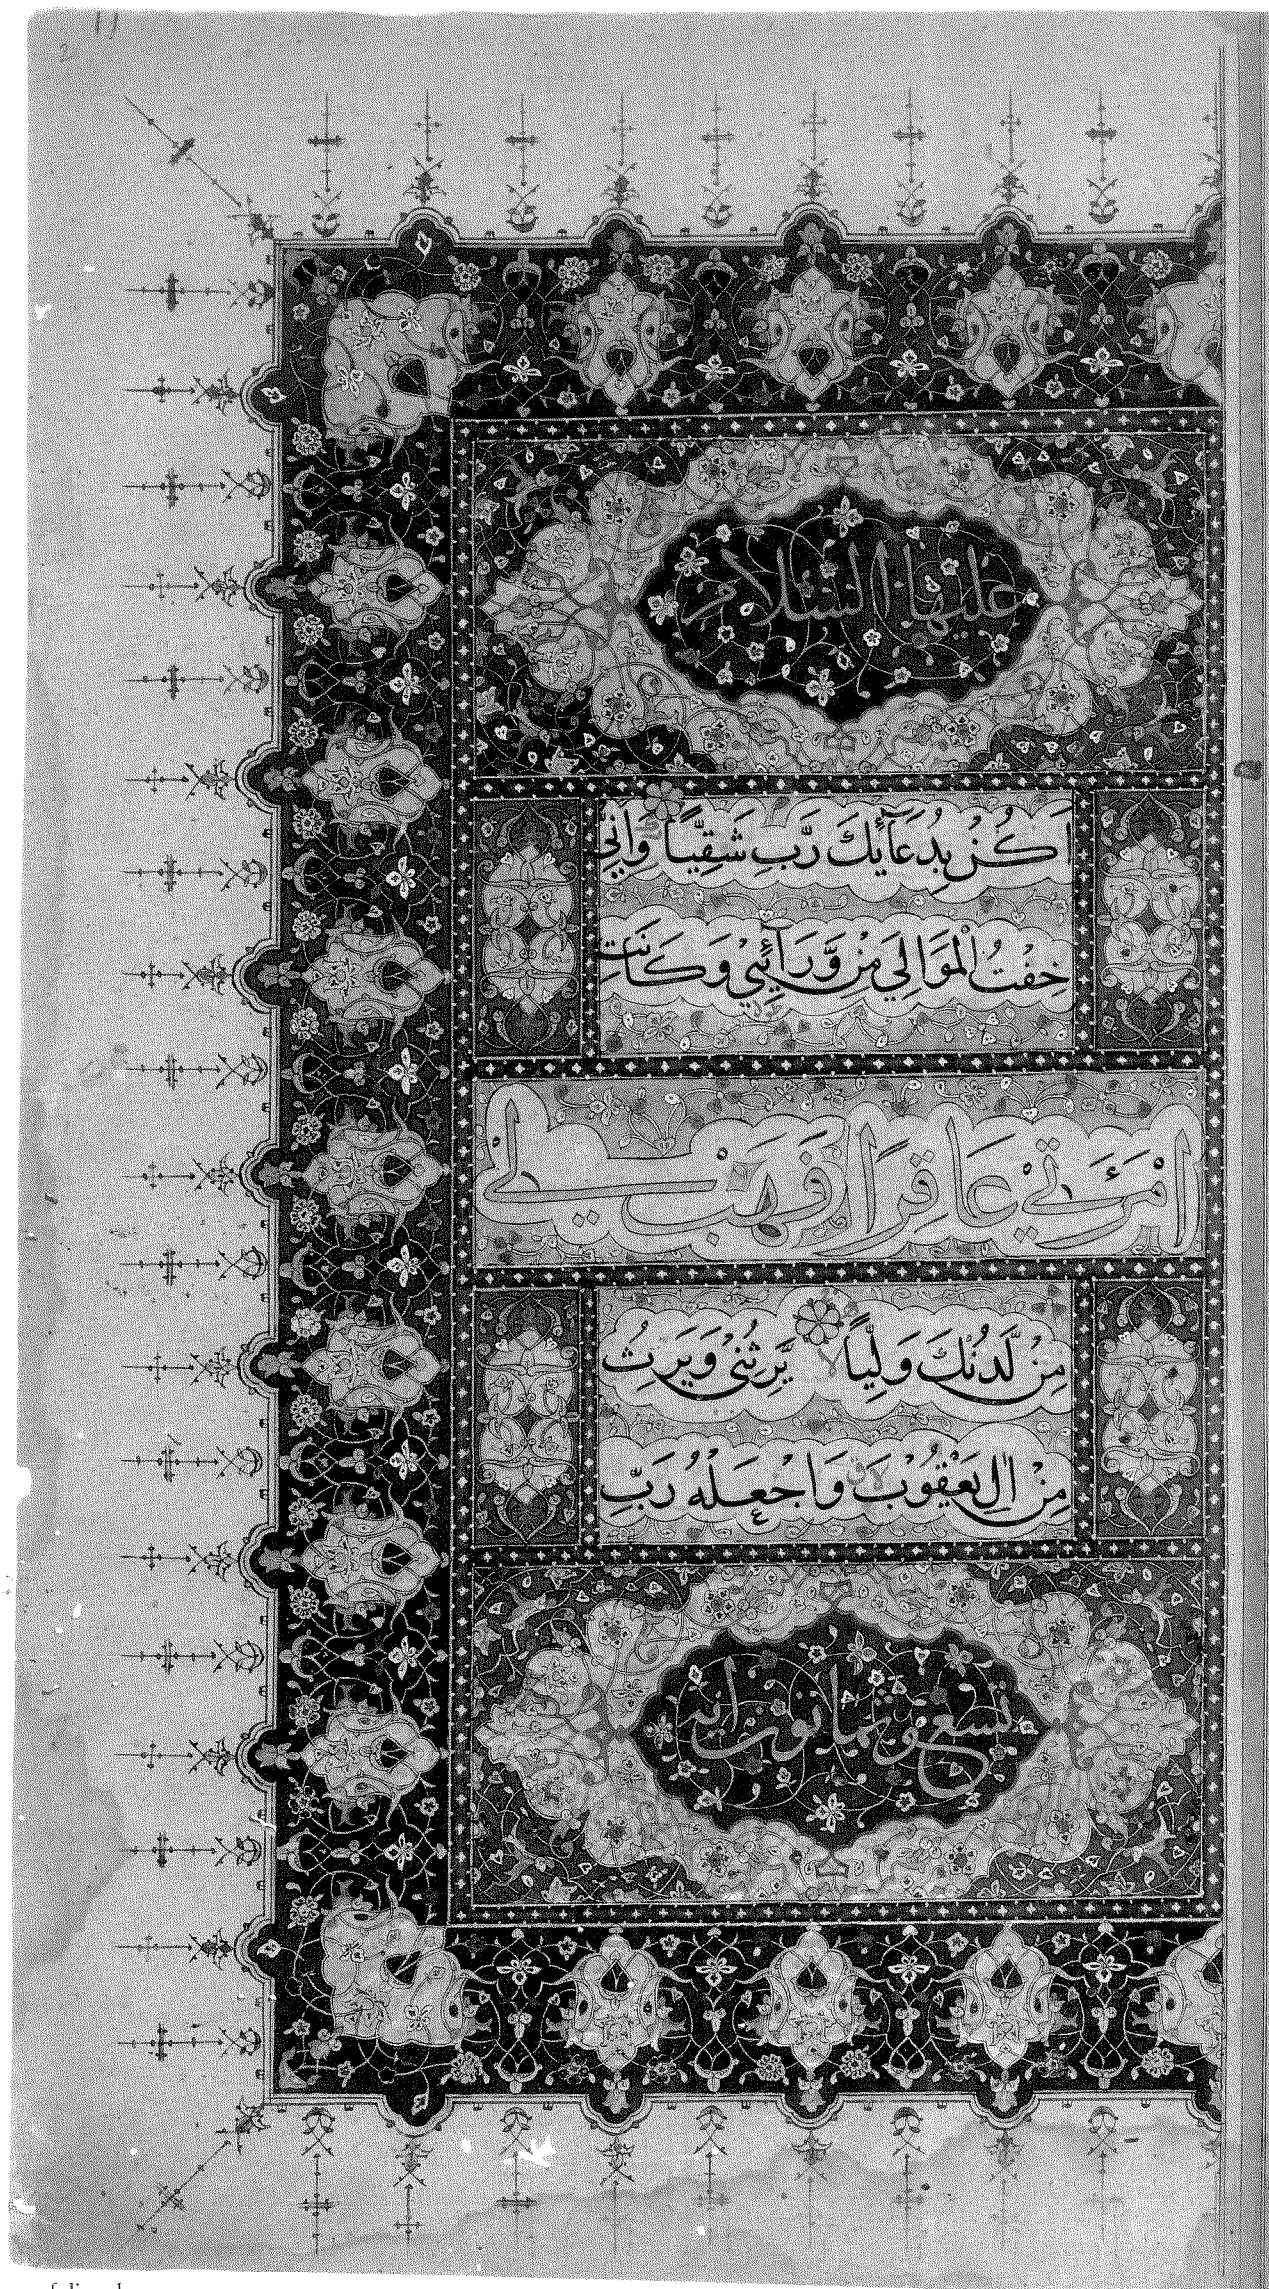 عليها السلام
اَكُنْ بِدُعَآئِكَ رَبِّ شَقِيًّا وَاِنِّي
خِفْتُ الْمَوَالِيَ مِنْ وَّرَآئِيْ وَكَانَتِ
امْرَءَتِيْ عَاقِرًا فَهَبْ لِيْ
مِنْ لَّدُنْكَ وَلِيًّا يَّرِثُنِيْ وَيَرِثُ
مِنْ اٰلِ يَعْقُوْبَ وَاجْعَلْهُ رَبِّ
تسعون ثمانون اية